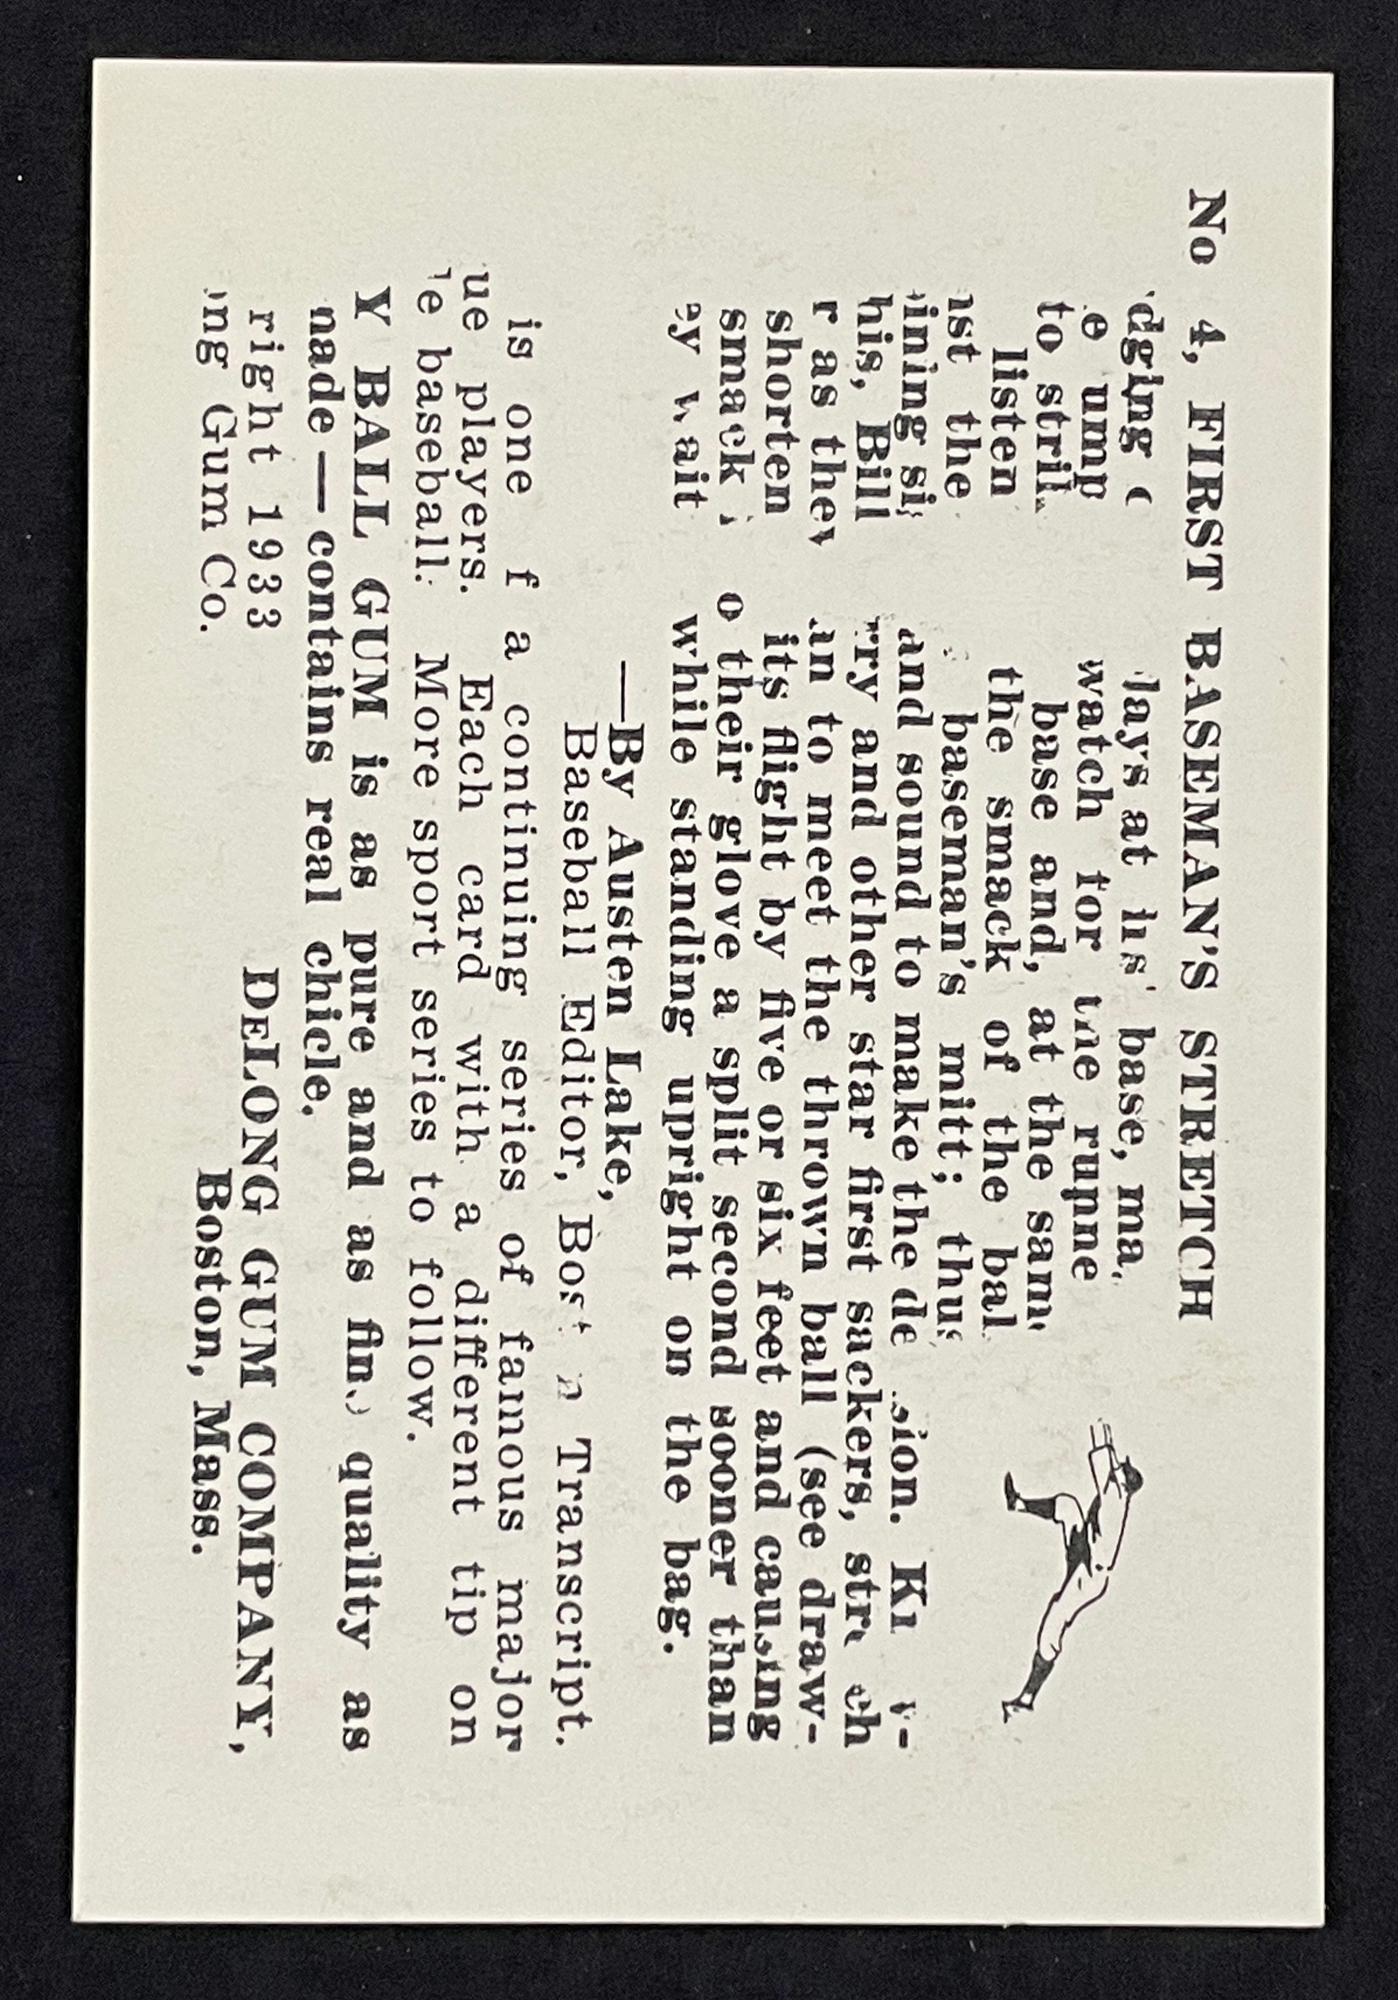 No 4, FIRST BASEMAN'S STRETCH
at base, ma
ump watch for the runne
to base and, at the sam
listen the smack of the bal
the baseman's mitt; thus
and sound to make the
his, Bill and other star first sackers,
as they to meet the thrown ball (see draw-
shorten its flight by five or six feet and causing
smack their glove a split second sooner than
wait while standing upright on the bag.
—By Austen Lake,
Baseball Editor, Transcript.
is one a continuing series of famous major
ue players. Each card with a different tip on
baseball. More sport series to follow.
Y BALL GUM is as pure and as quality as
made — contains real chicle.
right 1933 DELONG GUM COMPANY,
ng Gum Co. Boston, Mass.